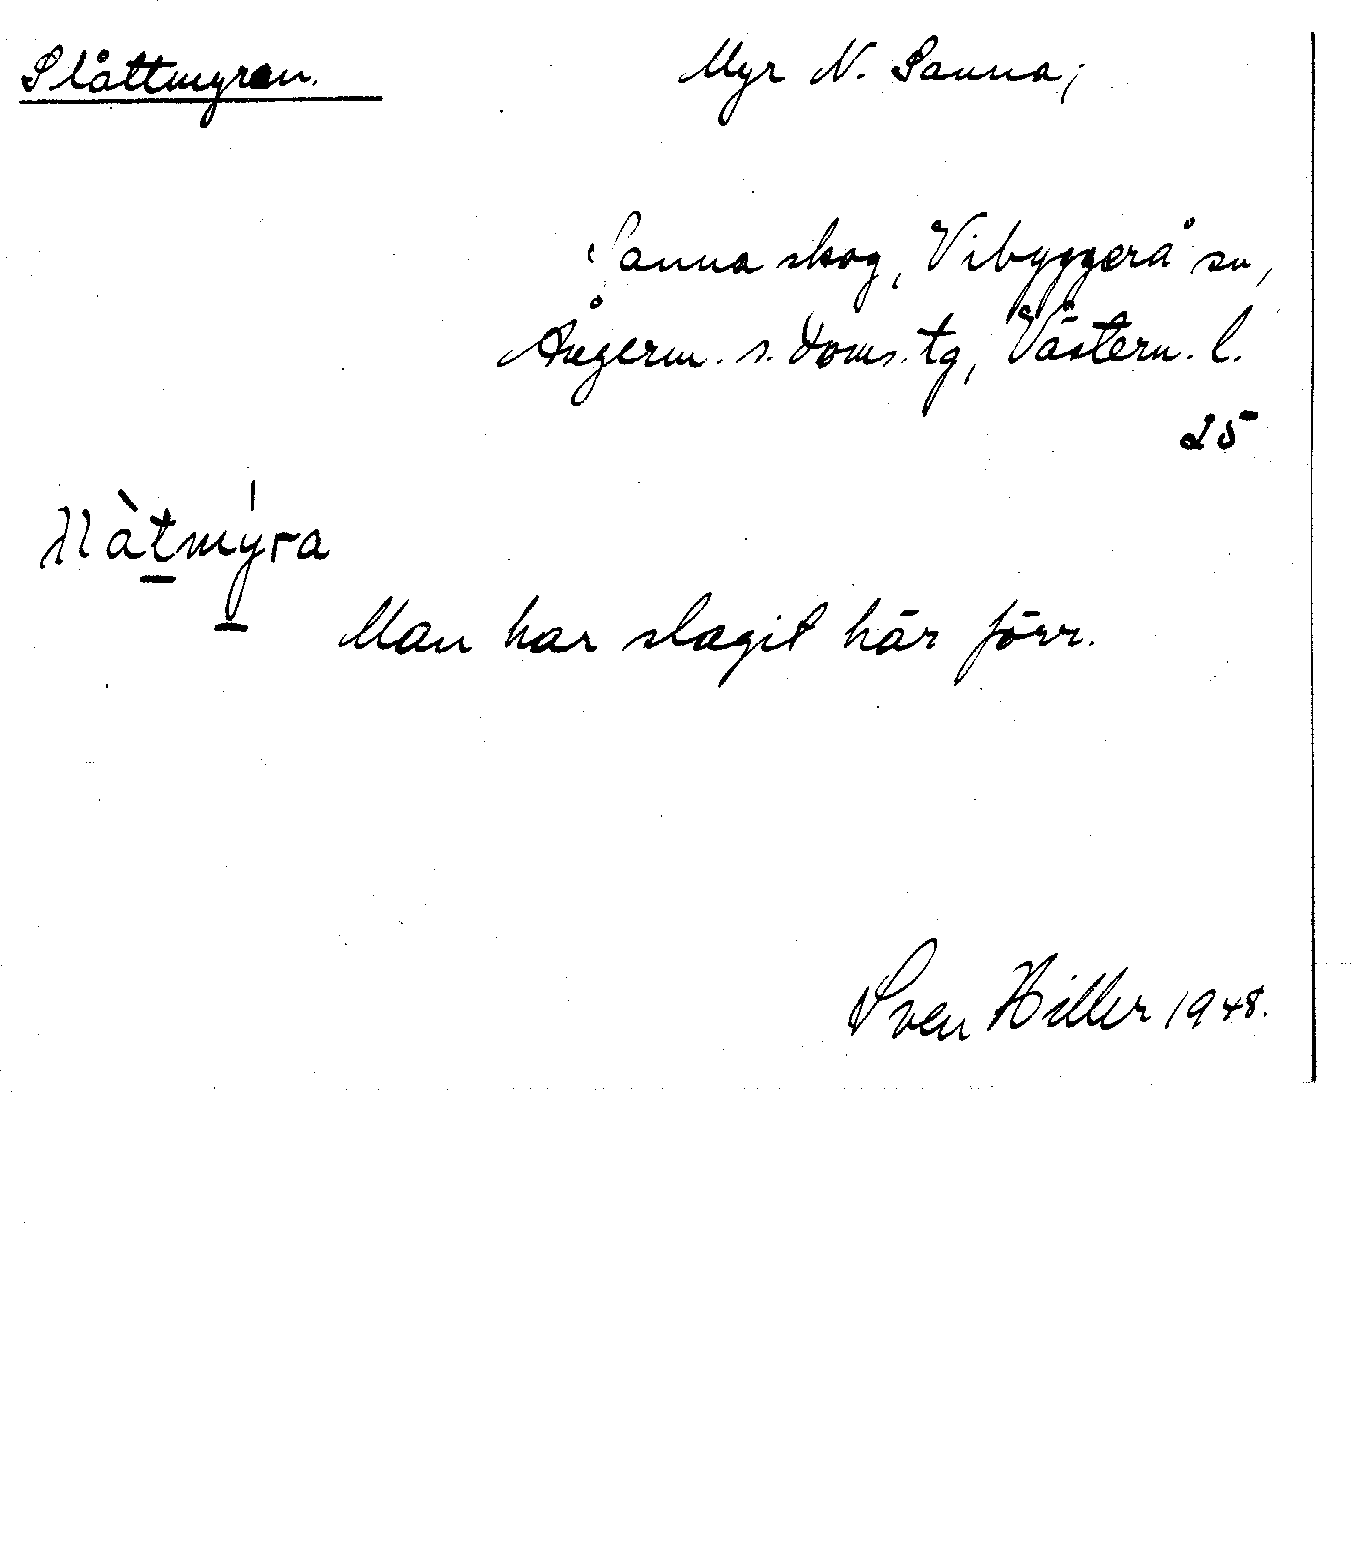 Slåttmyran. Myr N. Sanna;
Sanna skog, Vibyggerå sn,
Ångerm. s. doms. tg, Västern. l.
25
Man har slagit här förr.
Sven Hiller 1948.